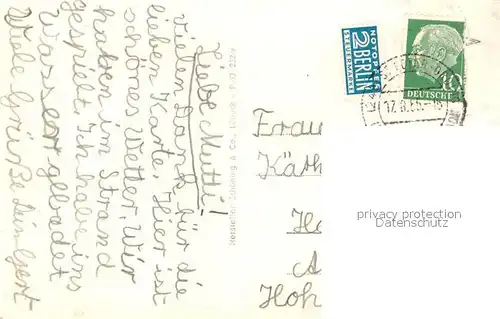 Liebe Mutti!
Vielen Dank für die
lieben Karte. Hier ist
schönes Wetter. Wir
haben im Strand
gespielt. Ich habe ins
Wasser gebadet
Viele Grüße Dein Gert
Schöning & Co., Lübeck
NOTOPFER
2 BERLIN
STEUERMARKE
10
DEUTSCHE
Frau
Käth
Ho
A
Hoh
privacy protection
watermark